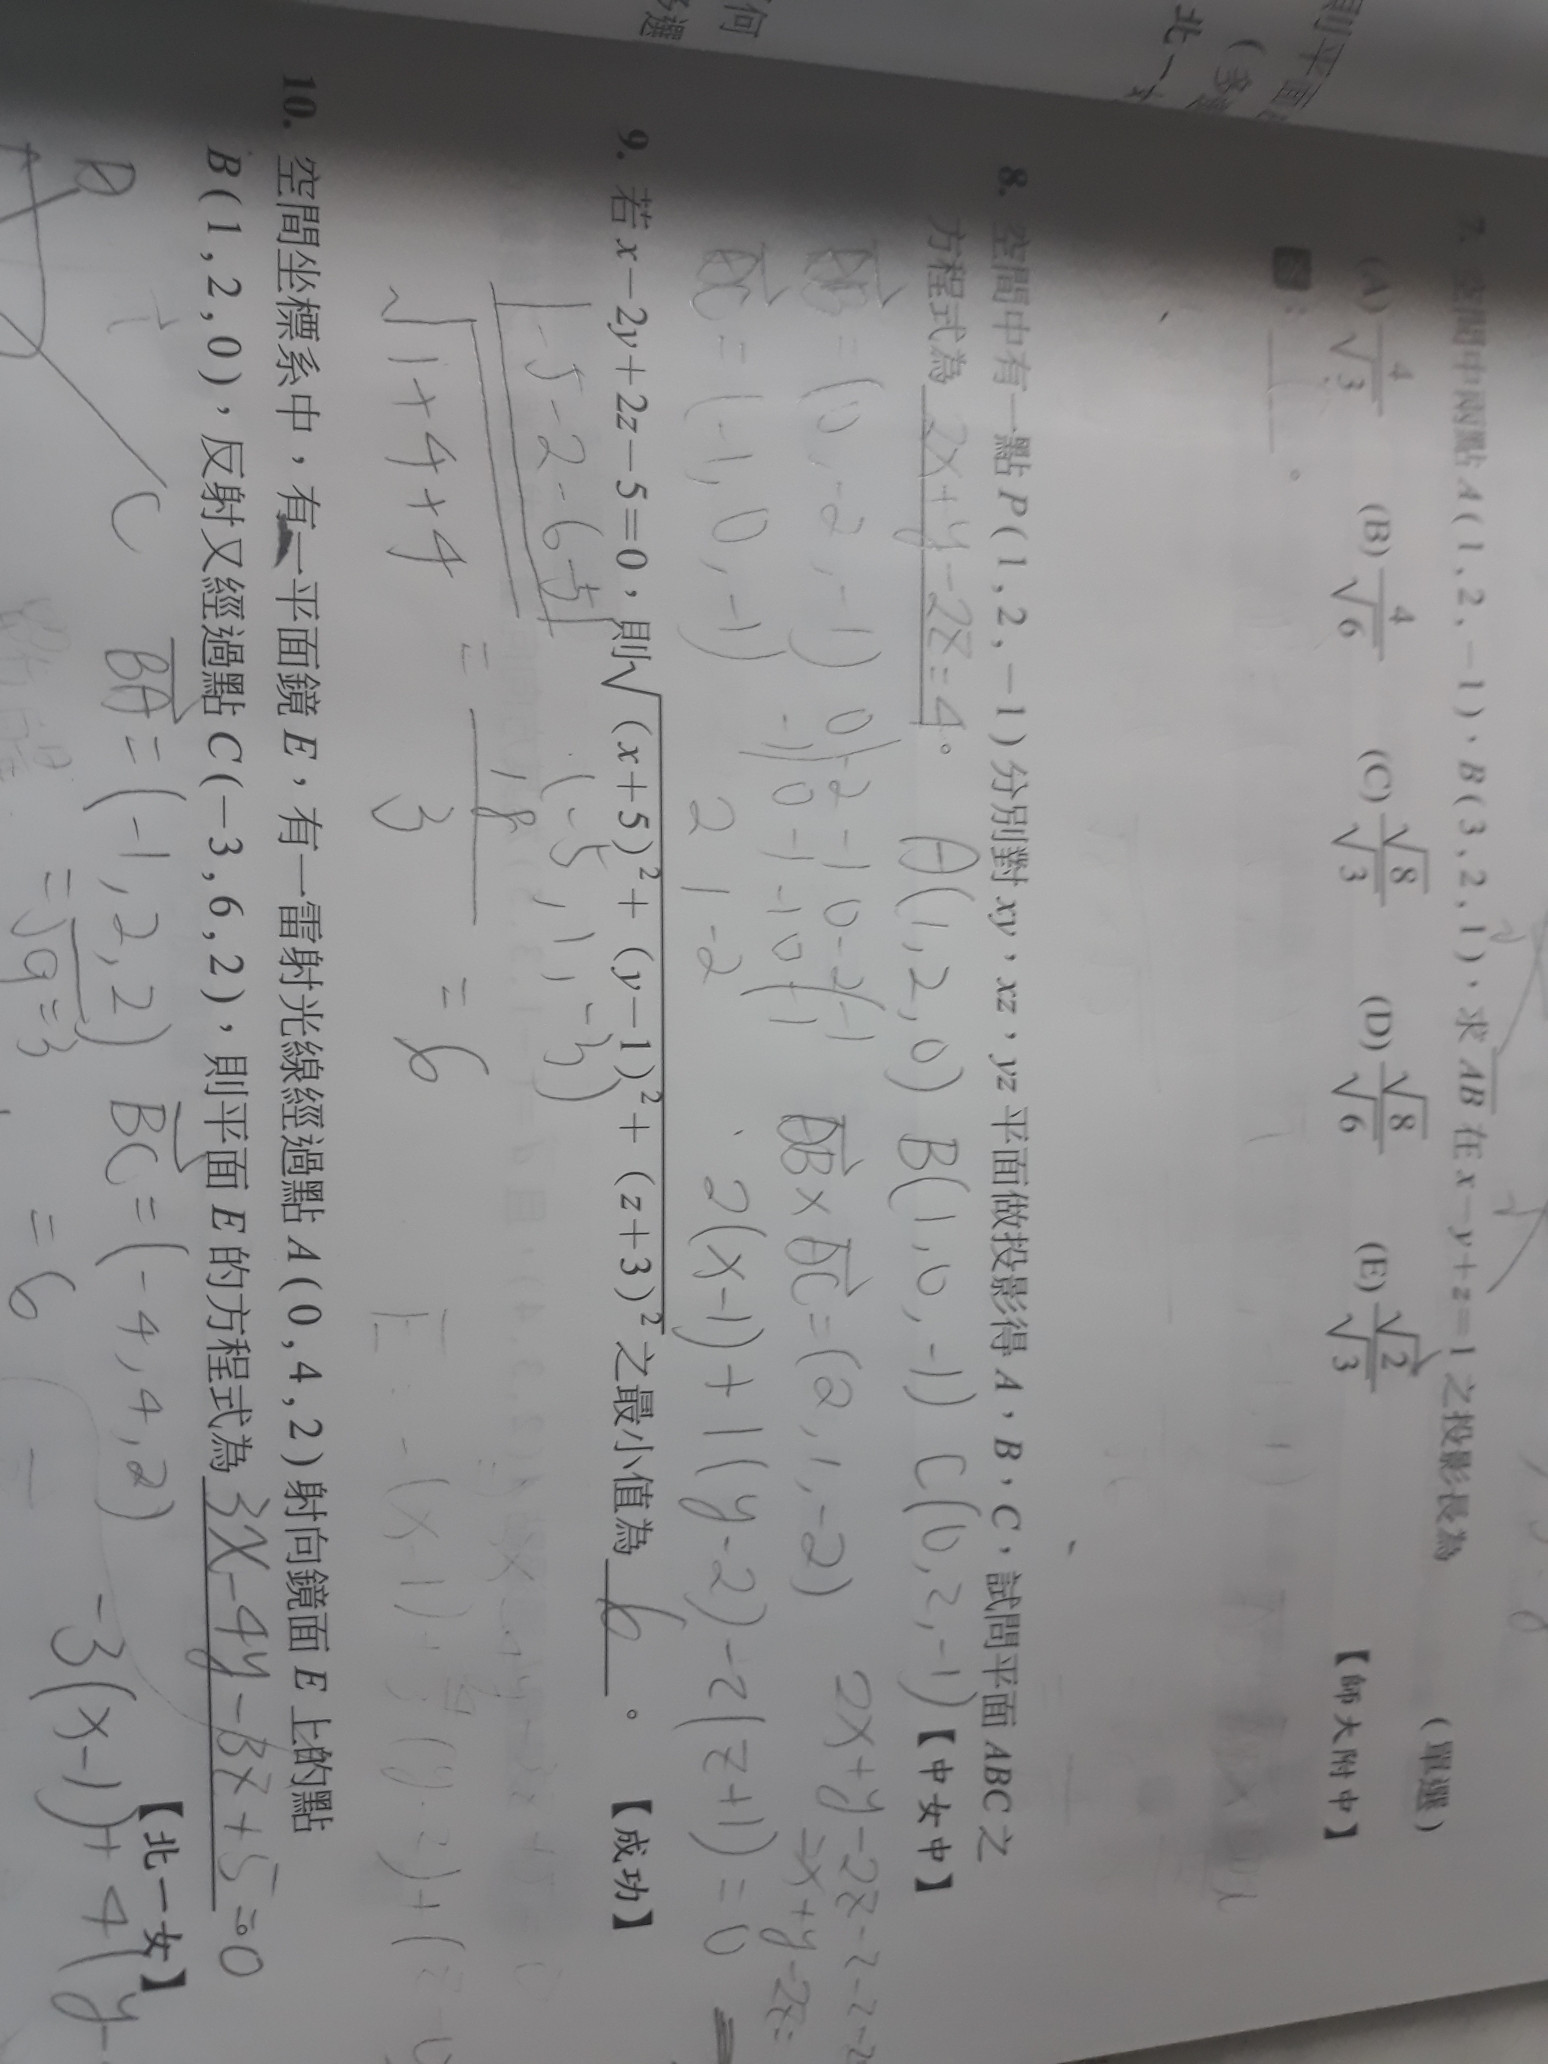 何
北一
則平面
7. 空間中兩點 A(1,2,−1)、B(3,2,1)、求 AB 在 x−y+z=1 之投影長為
(單選)
(A) 4/√3 (B) 4/√6 (C) √8/√3 (D) √8/√6 (E) √2/√3
【師大附中】
8. 空間中有一點 P(1,2,−1)分別對 xy,xz,yz 平面做投影得 A,B,C,試問平面 ABC 之
方程式為 2x+y−2z=4。 【中女中】
A(1,2,0) B(1,0,-1) C(0,2,-1)
AB = (0,-2,-1)
AC = (-1,0,-1)
AB×AC=(2,1,-2)
2 1 -2
2(x-1)+1(y-2)-2(z+1)=0
9. 若 x−2y+2z−5=0,則√(x+5)²+(y−1)²+(z+3)² 之最小值為 6 。 【成功】
|-5-2-6-5|
√1+4+4
= 18/3 = 6
(-5,1,-3)
10. 空間坐標系中,有一平面鏡 E,有一雷射光線經過點 A(0,4,2)射向鏡面 E 上的點
B(1,2,0),反射又經過點 C(−3,6,2),則平面 E 的方程式為 3x-4y-8z+5=0 。
【北一女】
C
BA=(-1,2,2) BC=(-4,4,2)
=√9=3 =6
-3(x-1)+4(y-